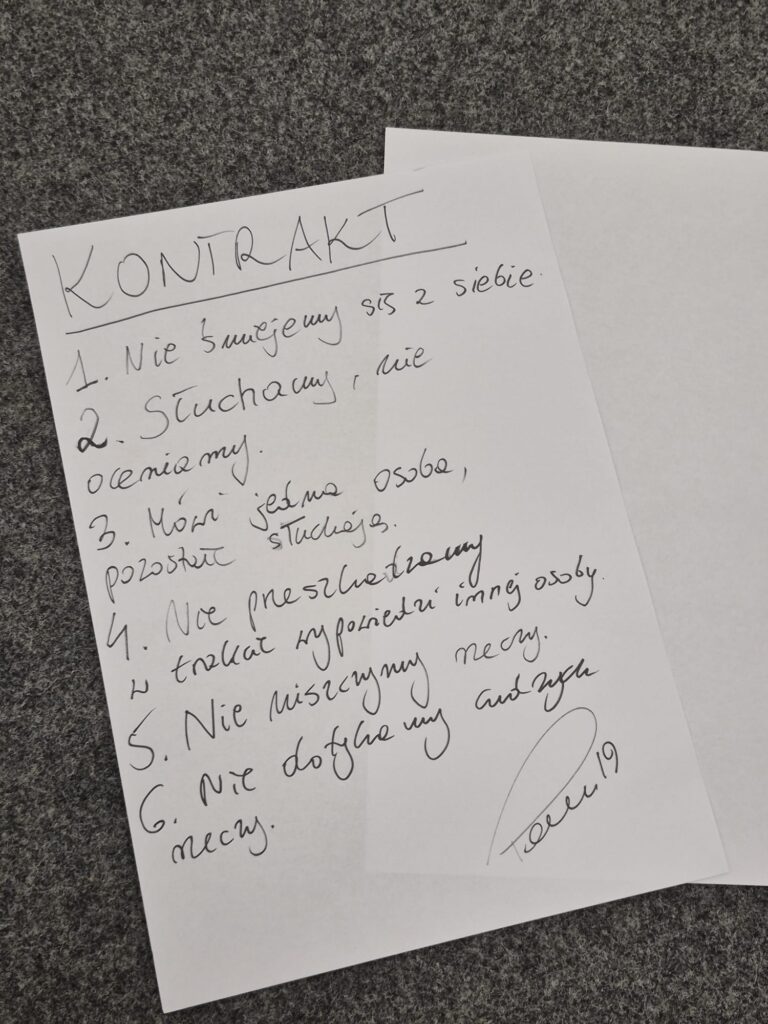 KONTRAKT
1. Nie śmiejemy się z siebie.
2. Słuchamy, nie
oceniamy.
3. Mówi jedna osoba,
pozostałe słuchają.
4. Nie przeszkadzamy
w trakcie wypowiedzi innej osoby.
5. Nie niszczymy rzeczy.
6. Nie dotykamy cudzych
rzeczy.